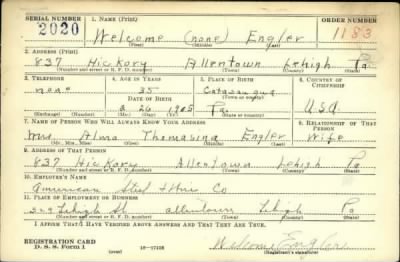 SERIAL NUMBER 1. NAME (Print) ORDER NUMBER
2020 Welcome (none) Engler 1183
(First) (Middle) (Last)
2. ADDRESS (Print)
837 Hickory Allentown Lehigh Pa.
(Number and street or R. F. D. number) (Town) (County) (State)
3. TELEPHONE 4. AGE IN YEARS 5. PLACE OF BIRTH 6. COUNTRY OF CITIZENSHIP
none 35 Catasauqua
DATE OF BIRTH (Town or county)
1905 Pa. U.S.A.
(Exchange) (Number) (Mo.) (Day) (Yr.) (State or country)
7. NAME OF PERSON WHO WILL ALWAYS KNOW YOUR ADDRESS 8. RELATIONSHIP OF THAT PERSON
Mrs. Alma Thomasina Engler Wife
(Mr., Mrs., Miss) (First) (Middle) (Last)
9. ADDRESS OF THAT PERSON
837 Hickory Allentown Lehigh Pa.
(Number and street or R. F. D. number) (Town) (County) (State)
10. EMPLOYER'S NAME
American Steel & Wire Co
11. PLACE OF EMPLOYMENT OR BUSINESS
Lehigh St Allentown Lehigh Pa
(Number and street or R. F. D. number) (Town) (County) (State)
I AFFIRM THAT I HAVE VERIFIED ABOVE ANSWERS AND THAT THEY ARE TRUE.
REGISTRATION CARD
D. S. S. Form 1 (over) 16—17105 Welcome Engler
(Registrant's signature)